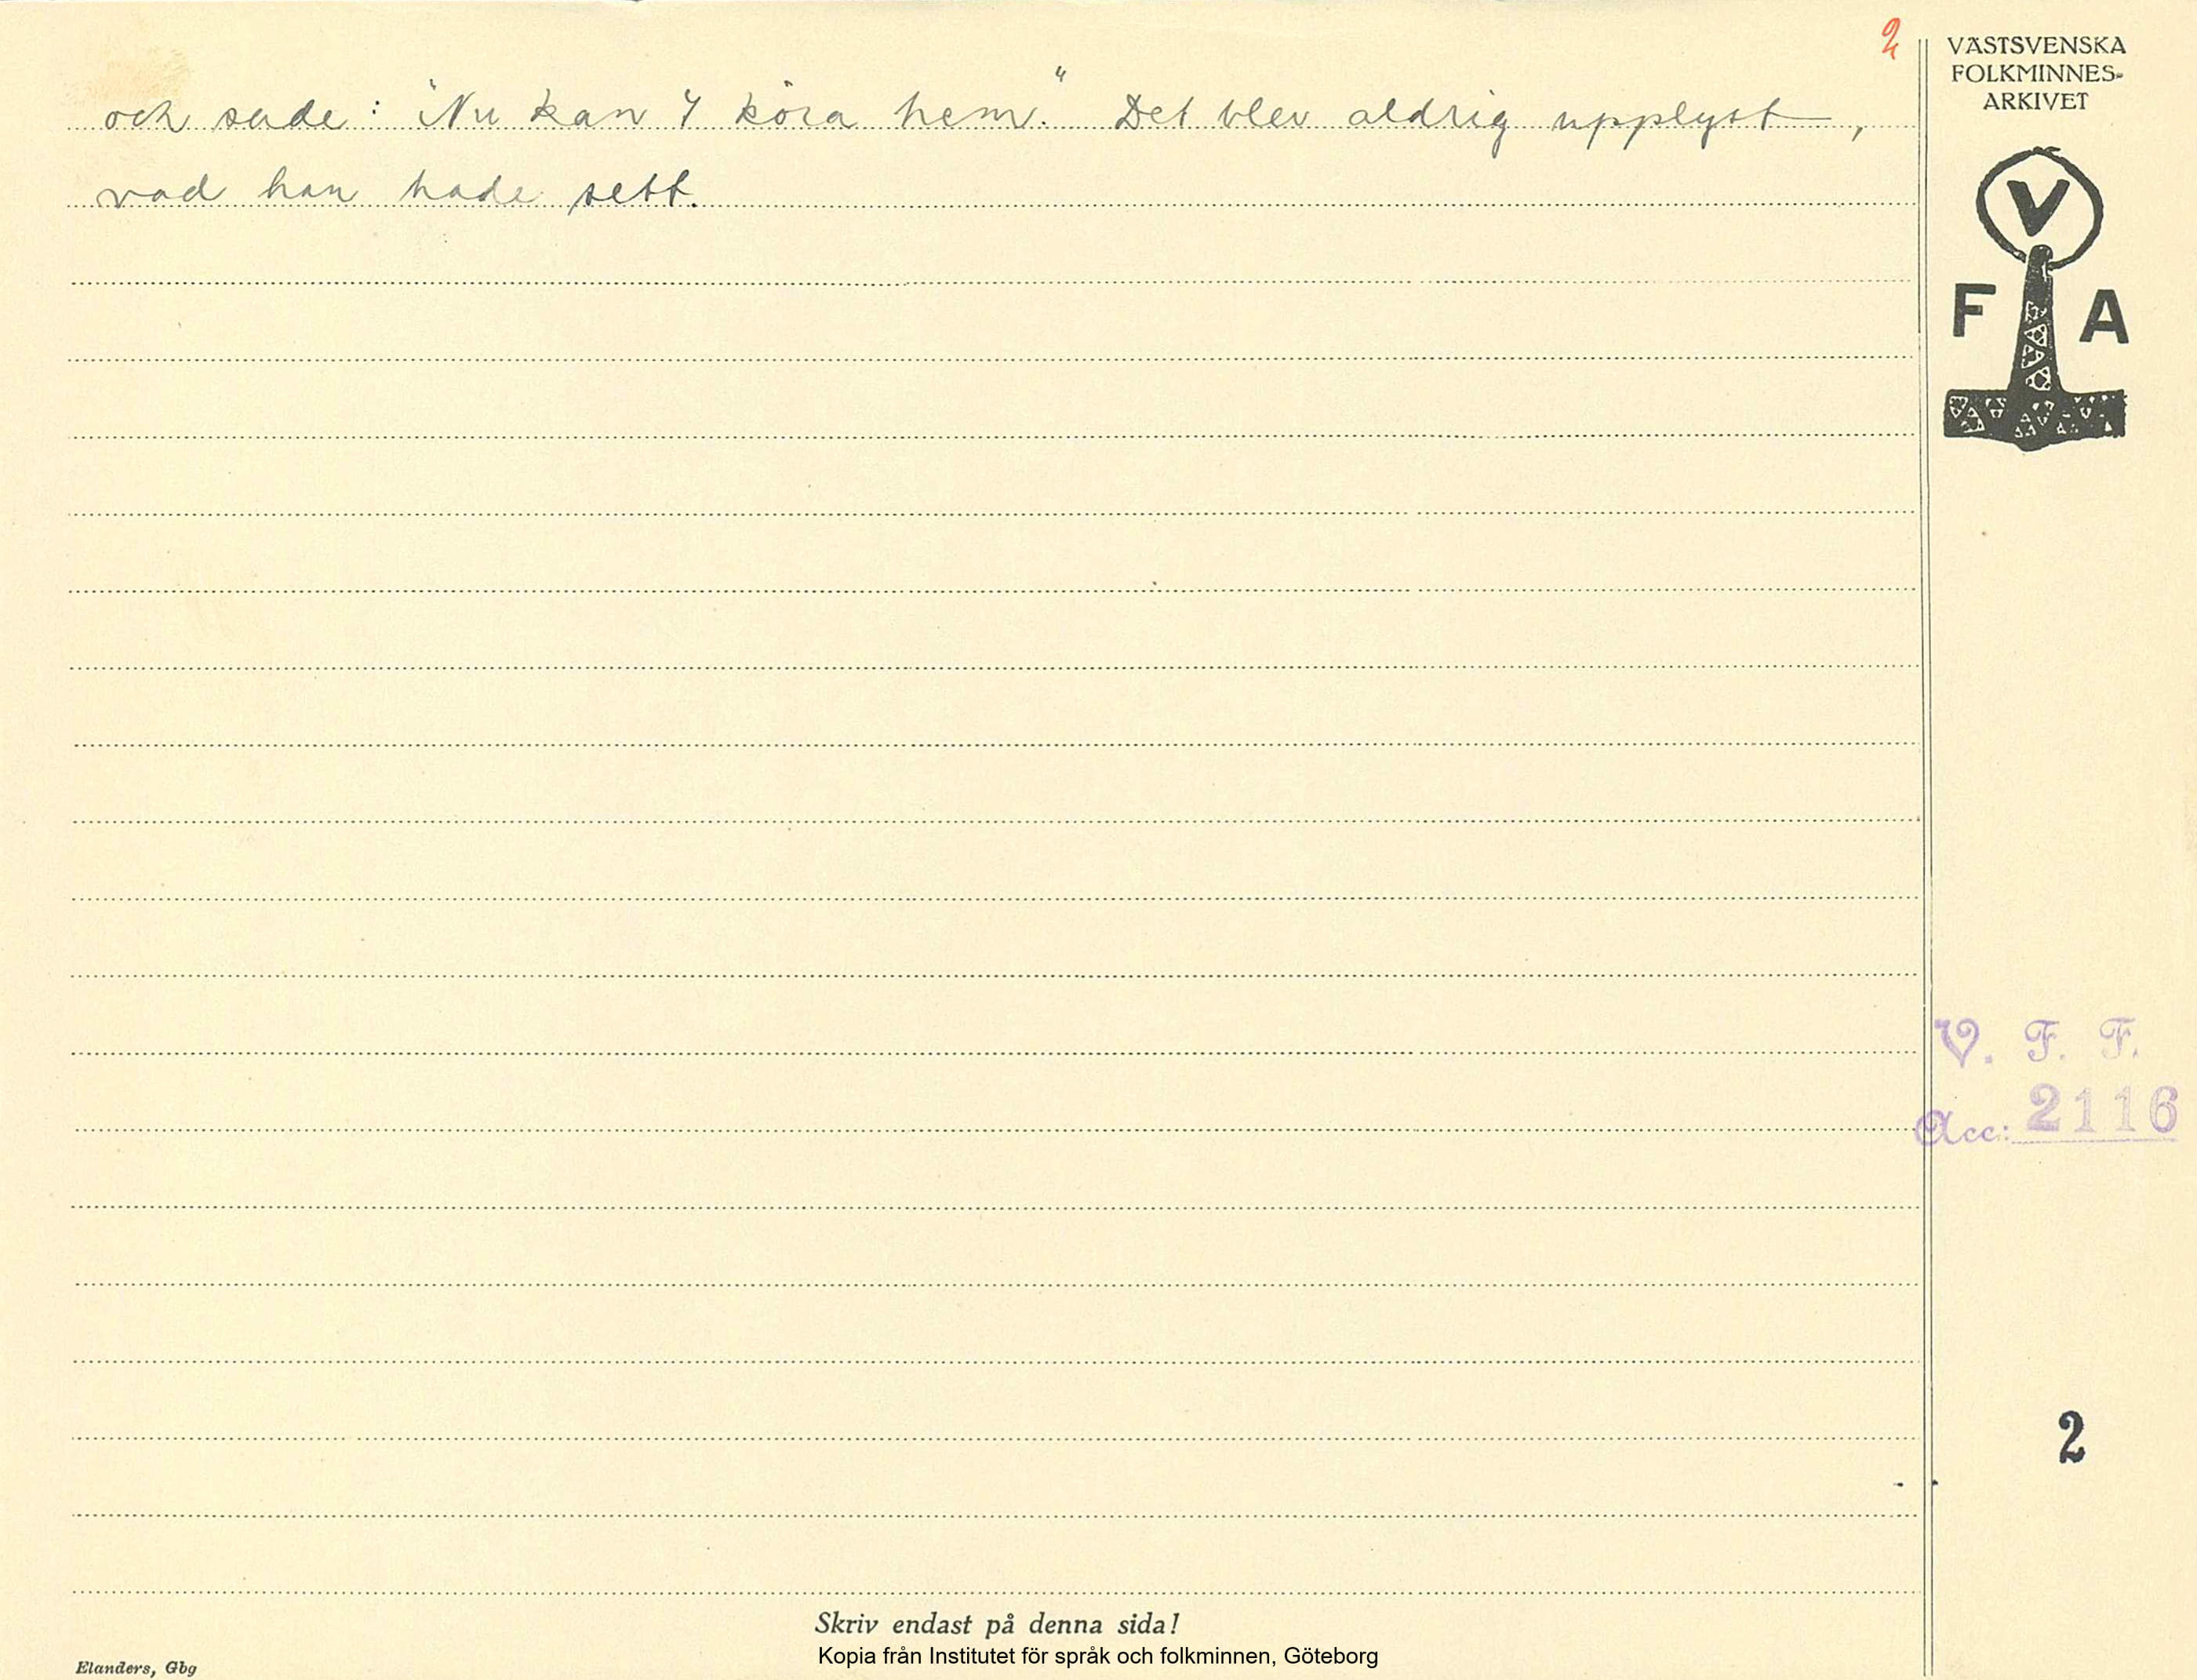 2
VÄSTSVENSKA
FOLKMINNES-
ARKIVET
och sade: "Nu kan I köra hem." Det blev aldrig upplyst,
vad han hade sett.
V
F A
V. F. F.
Acc: 2116
2
Skriv endast på denna sida!
Kopia från Institutet för språk och folkminnen, Göteborg
Elanders, Gbg